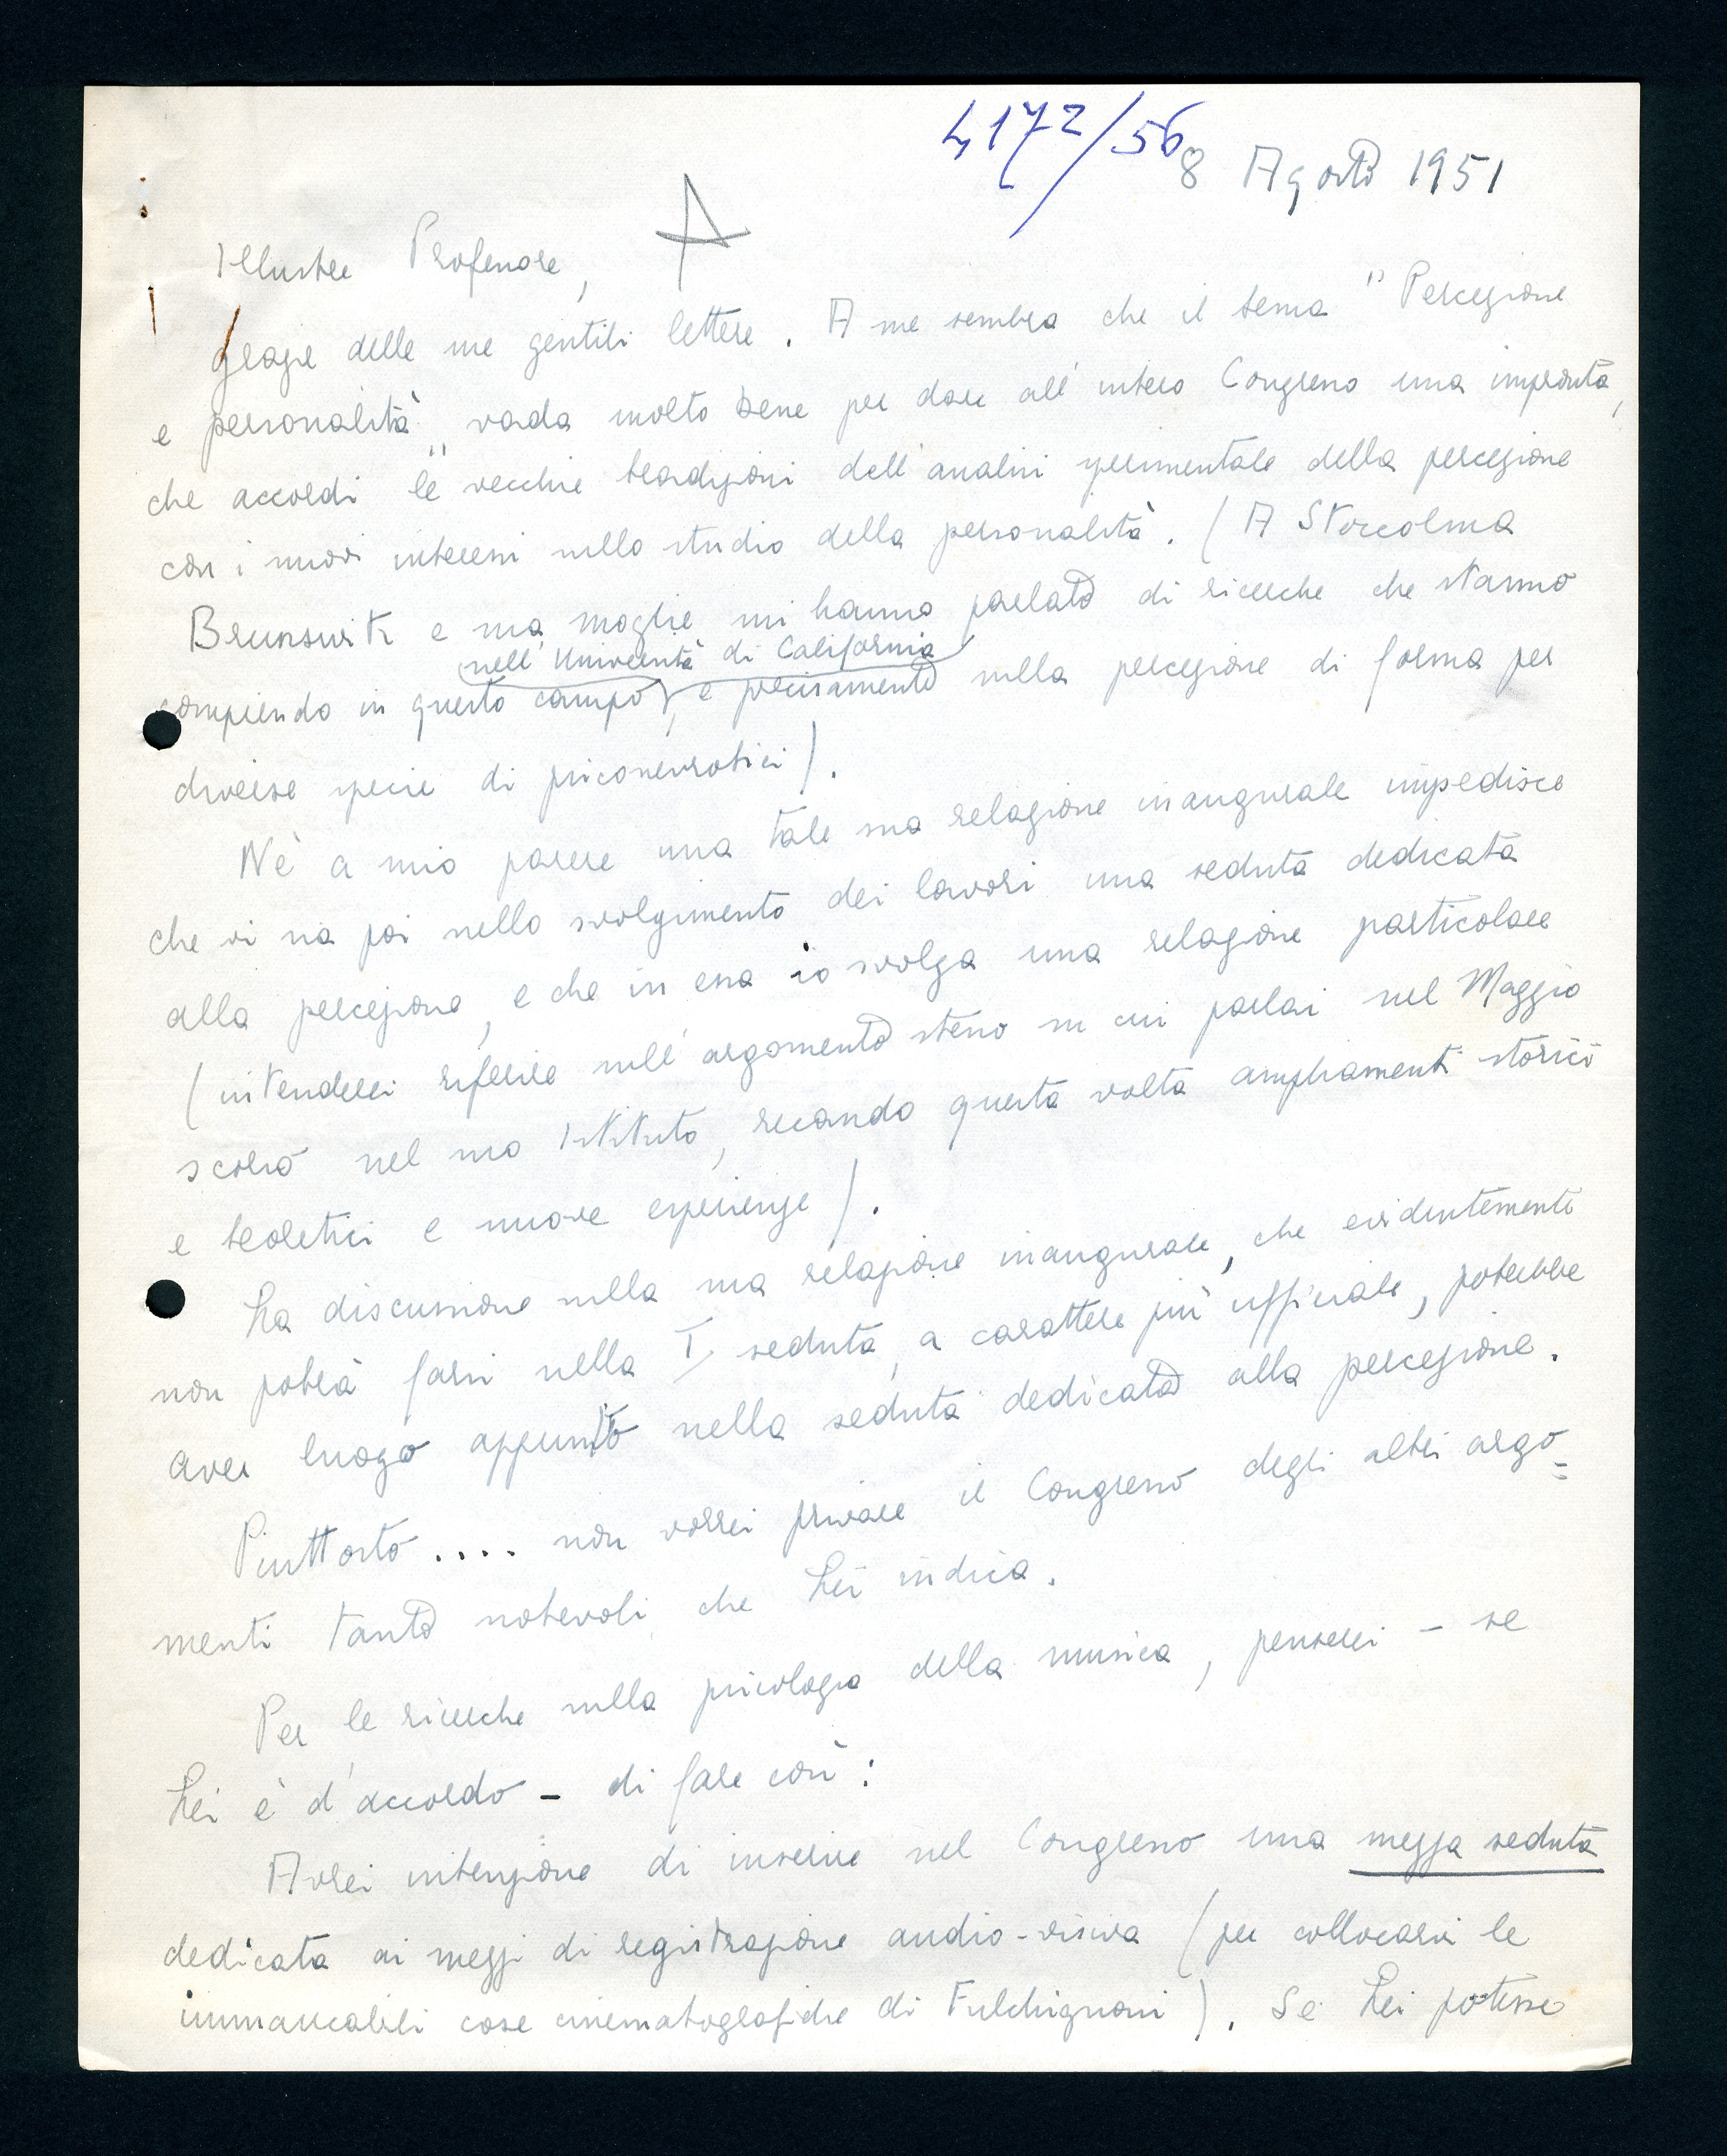 4172/56
8 Agosto 1951
A
Illustre Professore,
grazie delle sue gentili lettere. A me sembra che il tema "Percezione
e personalità" vada molto bene per dare all'intero Congresso una impronta,
che accordi le vecchie tradizioni dell'analisi sperimentale della percezione
con i nuovi interessi sullo studio della personalità. (A Stoccolma
Brunswik e sua moglie mi hanno parlato di ricerche che stanno
nell'Università di California
compiendo in questo campo, e precisamente sulla percezione di forma per
diverse specie di psiconevrotici).
Nè a mio parere una tale sua relazione inaugurale impedisce
che vi sia poi nello svolgimento dei lavori una seduta dedicata
alla percezione, e che in essa io svolga una relazione particolare
(intenderei riferire sull'argomento stesso su cui parlai nel Maggio
scorso nel suo Istituto, recando questa volta ampliamenti storici
e teoretici e nuove esperienze).
La discussione sulla sua relazione inaugurale, che evidentemente
non potrà farsi nella I seduta, a carattere più ufficiale, potrebbe
aver luogo appunto nella seduta dedicata alla percezione.
Piuttosto .... non vorrei privare il Congresso degli altri argo=
menti tanto notevoli che Lei indica.
Per le ricerche sulla psicologia della musica, penserei - se
Lei è d'accordo - di fare così:
Avrei intenzione di inserire nel Congresso una mezza seduta
dedicata ai mezzi di registrazione audio-visiva (per collocarvi le
immancabili cose cinematografiche di Fulchignoni). Se Lei potesse